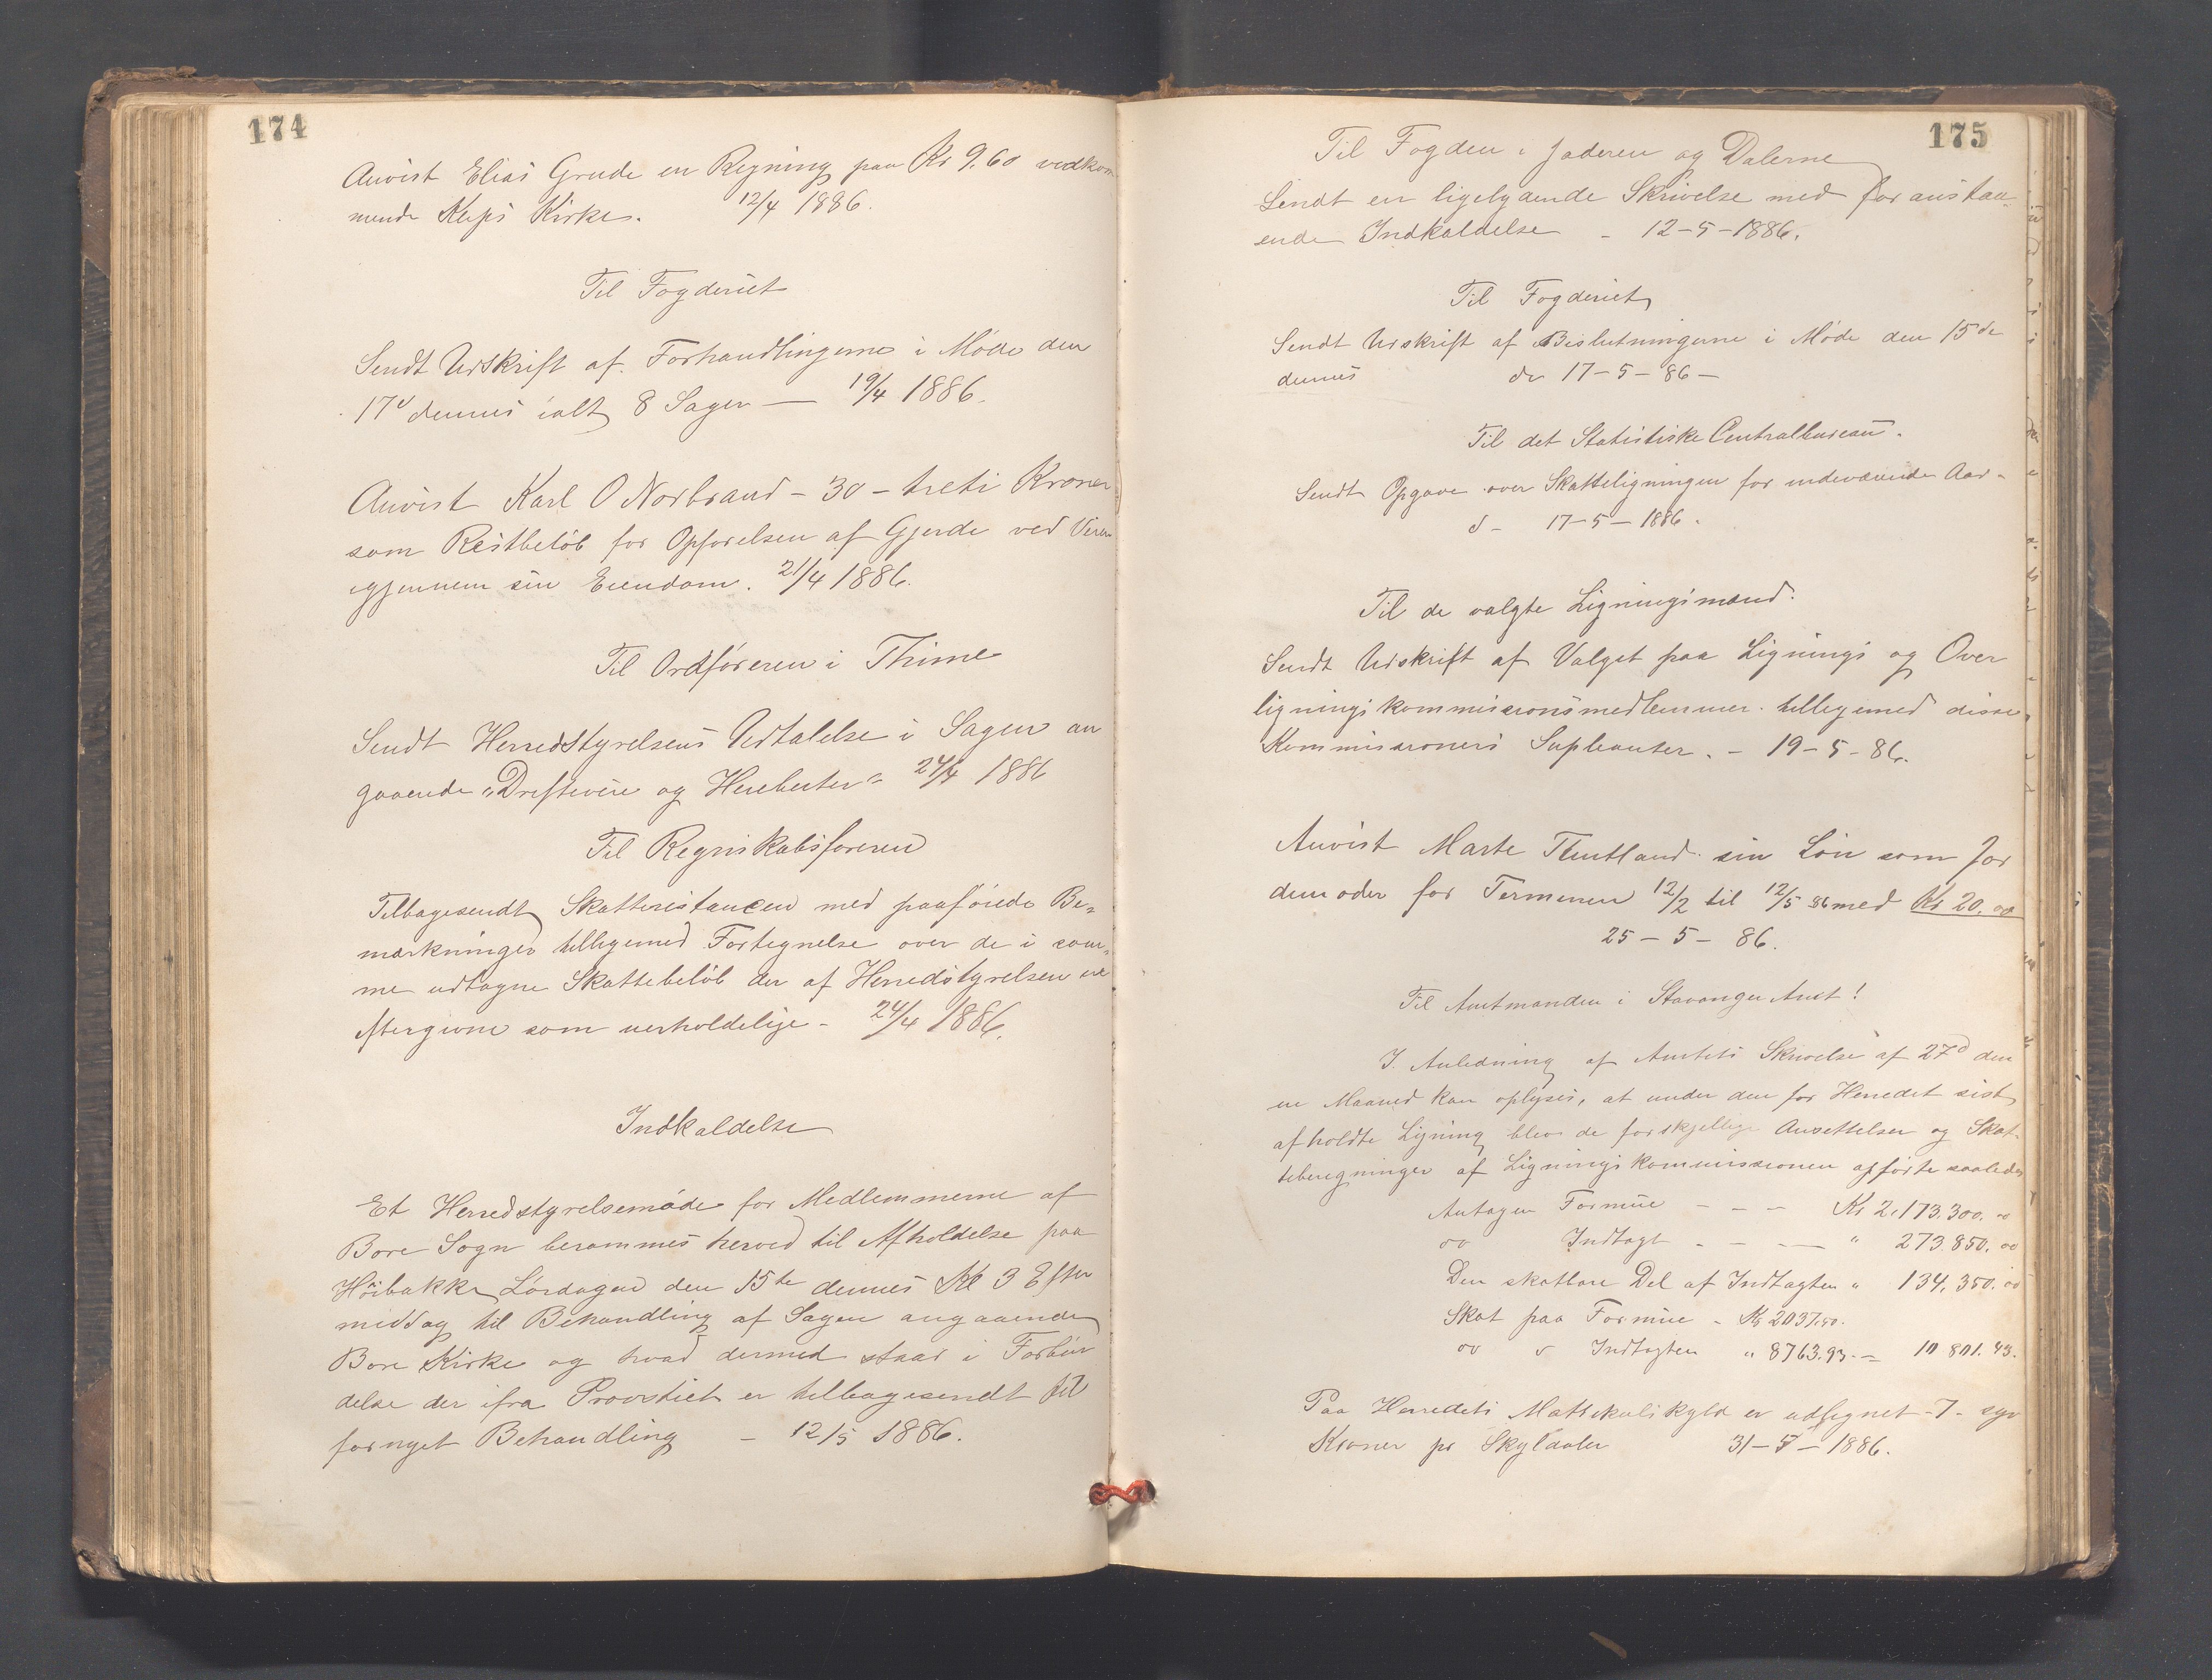 174
Anvist Elias Grude en Regning paa Kr 9.60 vedkom
mende Kleps Kirke. 12/4 1886.
Til Fogderiet
Sendt Udskrift af Forhandlingerne i Møde den
17d dennes ialt 8 Sager — 19/4 1886.
Anvist Karl O Norbraud - 30 - treti Kroner
som Restbeløb for Opførelsen af Gjerde ved Veien
igjennem sin Eiendom. 21/4 1886.
Til Ordføreren i Thime
Sendt Herredstyrelsens Udtalelse i Sagen an
gaaende "Drifteveie og Heiebeiter" 24/4 1886
Til Regnskabsføreren
Tilbagesendt Skatterestancen med paaførede Be=
mærkninger tilligemed Fortegnelse over de i sam=
me udtagne Skattebeløb der af Herredstyrelsen er
eftergivne som uerholdelige - 24/4 1886.
Indkaldelse
Et Herredstyrelsemøde for Medlemmerne af
Bore Sogn berammes herved til Afholdelse paa
Høibakke Lørdagen den 15de dennes Kl 3 Efter
middag til Behandling af Sagen angaaende
Bore Kirke og hvad dermed staar i Forbin
delse der ifra Provstiet er tilbagesendt til
fornyet Behandling - 12/5 1886.
175
Til Fogden i Jæderen og Dalerne
Sendt en ligelydende Skrivelse med foranstaa=
ende Indkaldelse - 12-5-1886.
Til Fogderiet
Sendt Udskrift af Beslutningerne i Møde den 15de
dennes d. 17-5-86-
Til det Statistiske Centralbureau.
Sendt Opgave over Skatteligningen for indeværende Aar-
d - 17-5-1886.
Til de valgte Ligningsmænd.
Sendt Udskrift af Valget paa Lignings og Over
ligningskommissionsmedlemmer tilligemed disse
Kommissioners Supleanter. - 19-5-86.
Anvist Marte Tlutland sin Løn som Jor
demoder for Terminen 12/2 til 12/5 86 med Kr 20.00
25-5-86.
Til Amtmanden i Stavanger Amt!
I Anledning af Amtets Skrivelse af 27d den
ne Maaned kan oplyses, at under den for Herredet sist
afholdte Ligning blev de forskjellige Ansettelser og Skat
teberegninger af Ligningskommissionen opførte saaledes
Antagen Formue - - - Kr 2,173.300.00
do Indtægt - - - " 273.850.00
Den skatbare Del af Indtægten " 134,350.00
Skat paa Formue - Kr 2037.50.
do " Indtægten " 8763.93. = 10 801.43.
Paa Herredets Matrikulskyld er udlignet -7- syv
Kroner pr Skylddaler 31-5-1886.